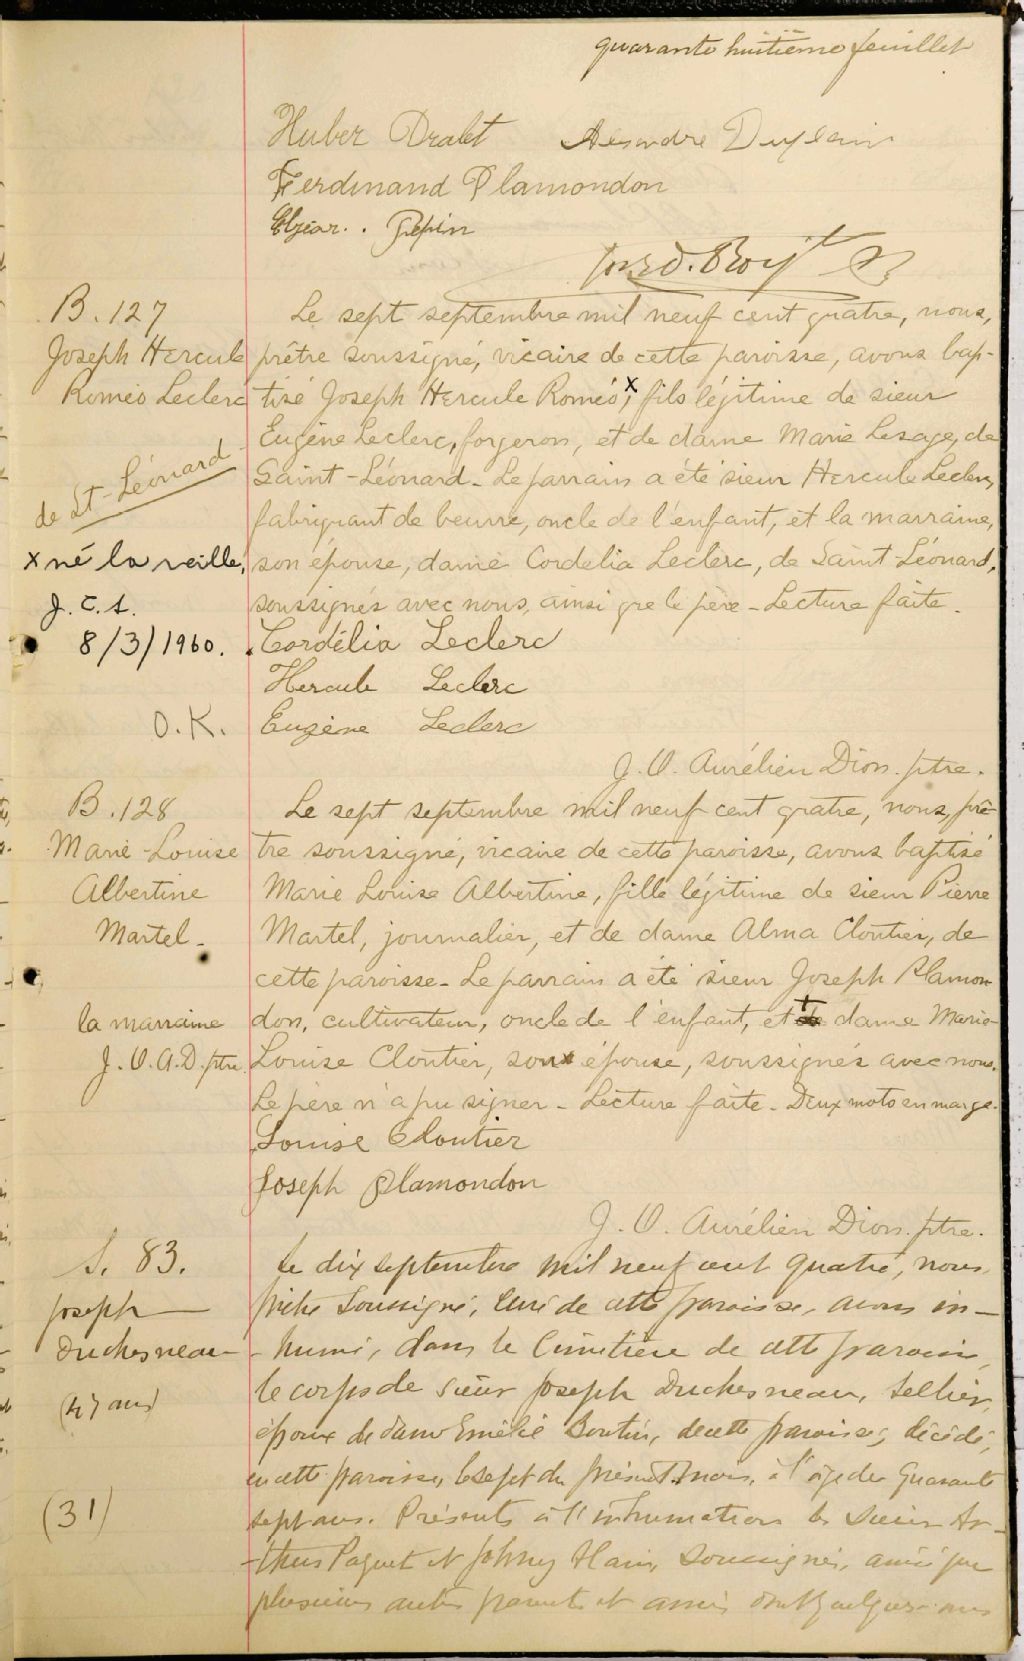 quarante huitième feuillet
Huber Dralet Alexandre Duplain
Ferdinand Plamondon
Elzéar. . Pepin
Jos. D. Roy Ptre
B. 127
Joseph Hercule
Roméo Leclerc
de St-Léonard -
x né la veille,
J. C. S.
8/3/1960.
O.K.
Le sept septembre mil neuf cent quatre, nous,
prêtre soussigné, vicaire de cette paroisse, avons bap-
tisé Joseph Hercule Roméo,x fils légitime de sieur
Eugène Leclerc, forgeron, et de dame Marie Lesage, de
Saint-Léonard - Le parrain a été sieur Hercule Leclerc,
fabriquant de beurre, oncle de l'enfant, et la marraine,
son épouse, dame Cordelia Leclerc, de Saint-Léonard,
soussignés avec nous, ainsi que le père - Lecture faite.
Cordélia Leclerc
Hercule Leclerc
Eugène Leclerc
J. O. Aurélien Dion. ptre.
B. 128
Marie-Louise
Albertine
Martel -
la marraine
J. O. A. D. ptre
Le sept septembre mil neuf cent quatre, nous, prê-
tre soussigné, vicaire de cette paroisse, avons baptisé
Marie Louise Albertine, fille légitime de sieur Pierre
Martel, journalier, et de dame Alma Cloutier, de
cette paroisse - Le parrain a été sieur Joseph Plamon-
don, cultivateur, oncle de l'enfant, et + dame Marie-
Louise Cloutier, son épouse, soussignés avec nous.
Le père n'a pu signer - Lecture faite - Deux mots en marge.
Louise Cloutier
Joseph Plamondon
J. O. Aurélien Dion. ptre.
S. 83.
Joseph
Duchesneau
(47 ans)
(31)
Le dix septembre mil neuf cent quatre, nous
prêtre soussigné, curé de cette paroisse, avons in-
humé, dans le cimetière de cette paroisse,
le corps de sieur Joseph Duchesneau, sellier,
époux de dame Emélie Boutin, de cette paroisse, décédé,
en cette paroisse, le sept du présent mois, à l'âge de quarante
sept ans. Présents à l'inhumation les sieurs Ar-
thur Paquet et Johny Alain, soussignés, ainsi que
plusieurs autres parents et amis dont quelques-uns